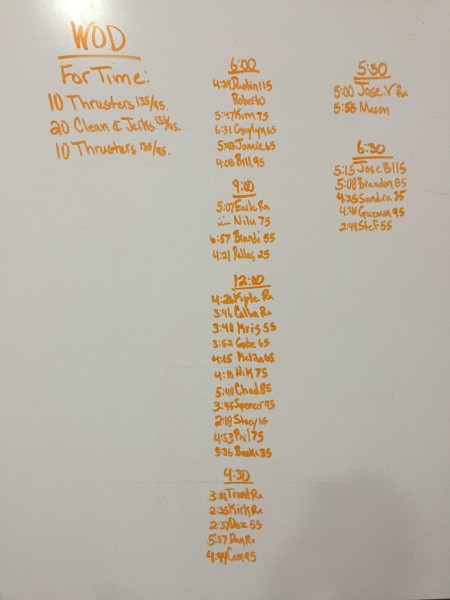 WOD
For Time:
10 Thrusters 135/95.
20 Clean & Jerks 135/95.
10 Thrusters 135/95.
6:00
4:29 Dustin 115
Roberto
5:47 Kim 75
6:31 65
5:48 Jamie 65
4:08 Bill 95
9:00
5:07 Earle Rx
Nilu 75
6:57 Brandi 55
4:21 25
12:00
4:28 Kyle Rx
3:46 Rx
3:48 Kris 55
3:52 Gabe 65
4:15 65
Nik 75
5:40 Chad 85
3:45 Spencer 95
2:18 Stacy 65
4:53 Phil 75
3:36 35
4:30
Trent Rx
2:35 Kirk Rx
2:37 55
5:17 Dan Rx
4:44 Cam 95
5:30
5:00 Jose V Rx
5:58 Mason
6:30
5:15 Jose B 115
5:08 Brandon 85
4:25 Sandra 35
Guzman 95
2:44 Stef 55